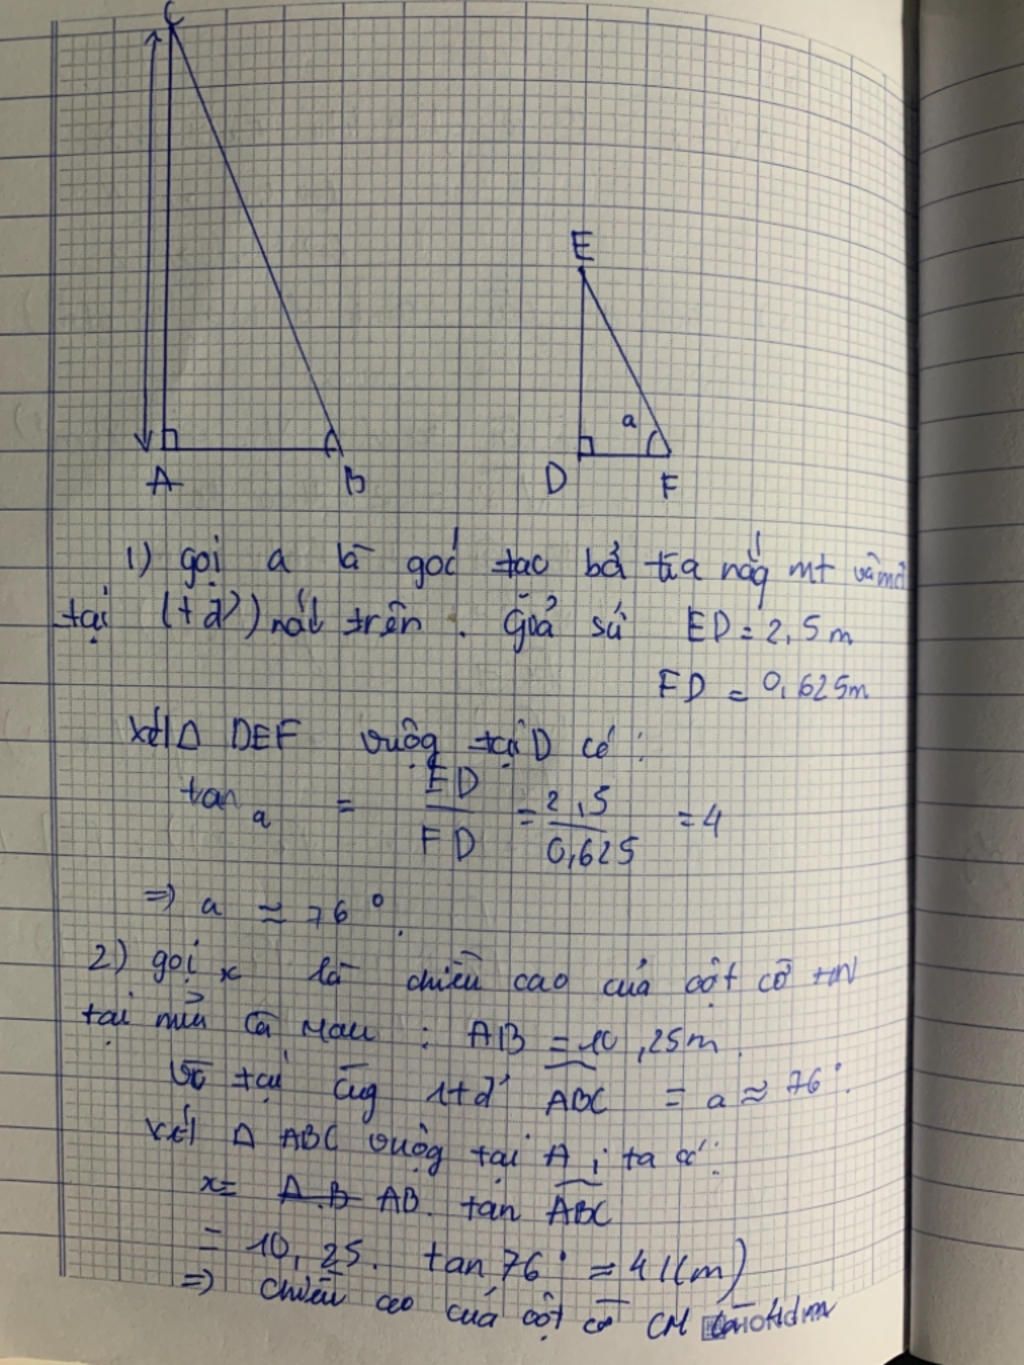 C
E
a
A B D F
1) gọi a là góc tạo bởi tia nắg mt và mđ
tại (tđ) nói trên. Giả sử ED = 2,5m
FD = 0,625m
Xét Δ DEF vuôg tại D có:
tan a = ED / FD = 2,5 / 0,625 = 4
=> a ≈ 76°.
2) gọi x là chiều cao của cột cờ
tại mũi Cà Mau : AB = 10,25m.
Vì tại cùg 1tđ ABC = a ≈ 76°.
xét Δ ABC vuôg tại A, ta có:
x = A.B AB. tan ABC
= 10,25. tan 76° ≈ 41(m)
=> chiều cao của cột cờ CM là